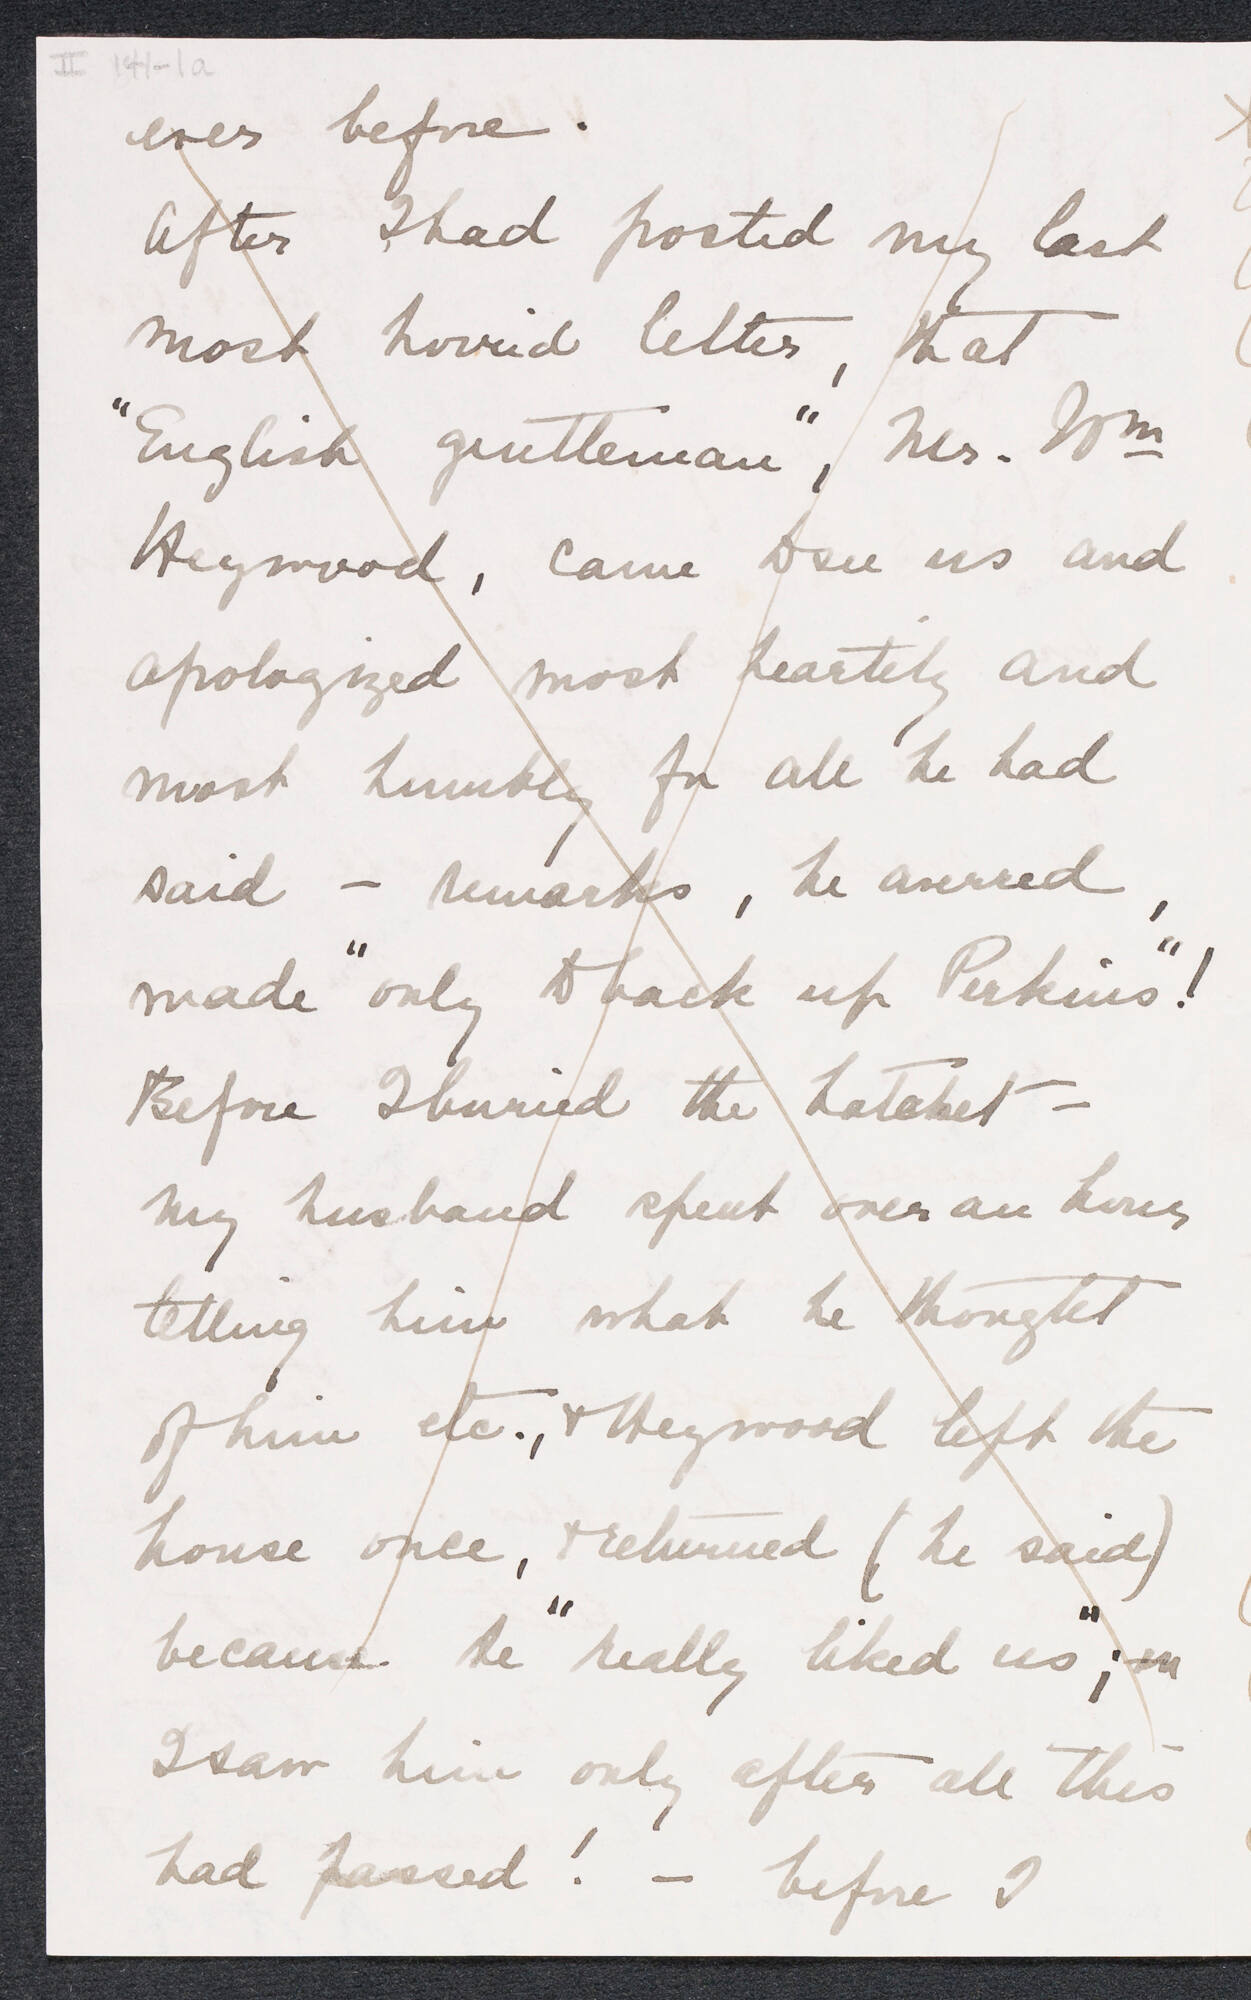 II 141-1a
ever before.
After I had posted my last
most horrid letter, that
"English gentleman", Mr. Wm
Heywood, came to see us and
apologized most heartily and
most humbly for all he had
said – remarks, he averred,
made "only to back up Perkins"!
Before I buried the hatchet –
my husband spent over an hour
telling him what he thought
of him etc., & Heywood left the
house once, & returned (he said)
because he "really liked us";
I saw him only after all this
had passed! – before I